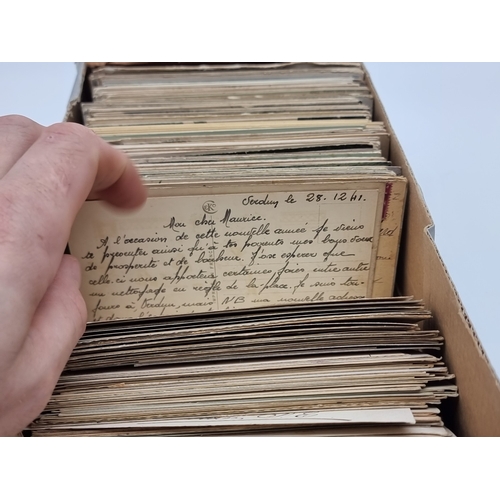 Verdun le 28.12.41.
Mon cher Maurice.
A l'occasion de cette nouvelle année je viens te
présenter ainsi qu'à tes parents mes bons vœux
de prospérité et de bonheur. J'ose espérer que
nous apportera certaines joies, entre autre
un nettoyage en règle de la place. Je suis tou-
jours à Verdun, mais NB ma nouvelle adresse